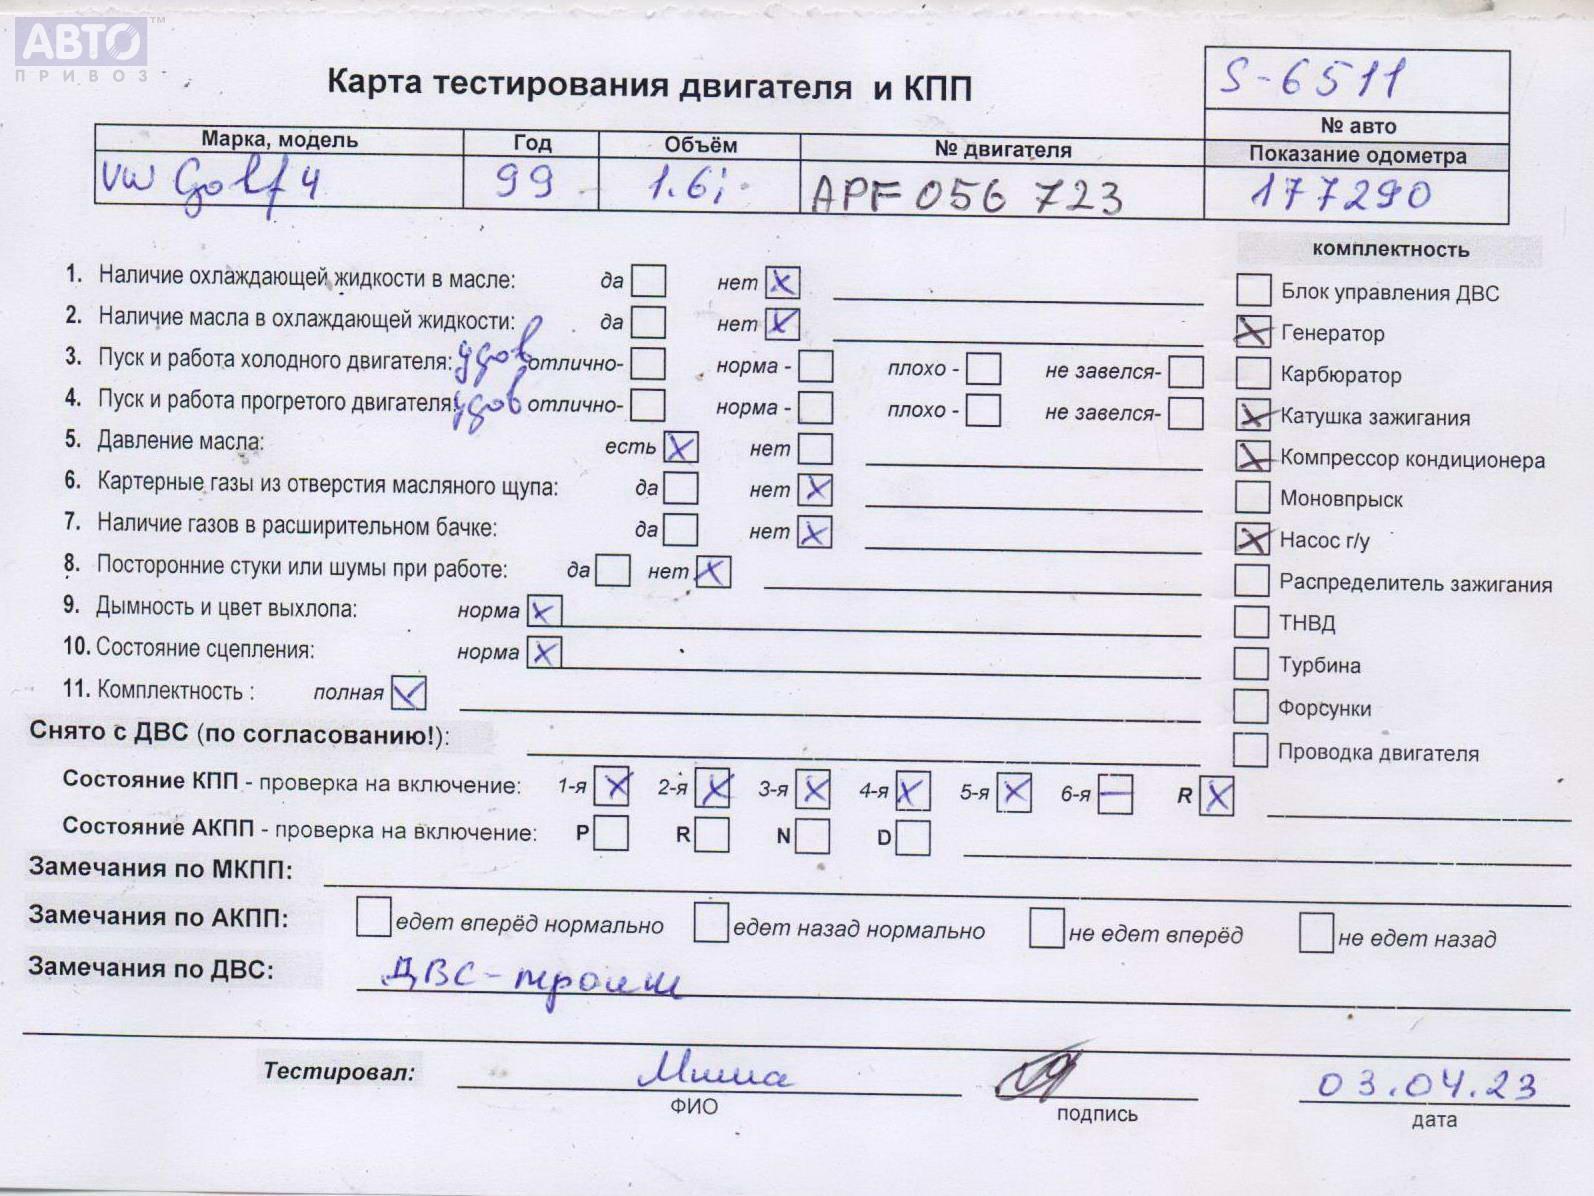 АВТО™
ПРИВОЗ
Карта тестирования двигателя и КПП
S-6511
№ авто
Марка, модель Год Объём № двигателя Показание одометра
VW Golf 4 99 1.6i APF 056 723 177290
комплектность
1. Наличие охлаждающей жидкости в масле: да нет X
Блок управления ДВС
2. Наличие масла в охлаждающей жидкости: да нет X
X Генератор
3. Пуск и работа холодного двигателя: удов отлично- норма - плохо - не завелся-
Карбюратор
4. Пуск и работа прогретого двигателя: удов отлично- норма - плохо - не завелся-
X Катушка зажигания
5. Давление масла: есть X нет
X Компрессор кондиционера
6. Картерные газы из отверстия масляного щупа: да нет X
Моновпрыск
7. Наличие газов в расширительном бачке: да нет X
X Насос г/у
8. Посторонние стуки или шумы при работе: да нет X
Распределитель зажигания
9. Дымность и цвет выхлопа: норма X
ТНВД
10. Состояние сцепления: норма X
Турбина
11. Комплектность : полная V
Форсунки
Снято с ДВС (по согласованию!):
Проводка двигателя
Состояние КПП - проверка на включение: 1-я X 2-я X 3-я X 4-я X 5-я X 6-я — R X
Состояние АКПП - проверка на включение: P R N D
Замечания по МКПП:
Замечания по АКПП: едет вперёд нормально едет назад нормально не едет вперёд не едет назад
Замечания по ДВС: ДВС - троит
Тестировал: Миша 03.04.23
ФИО подпись дата